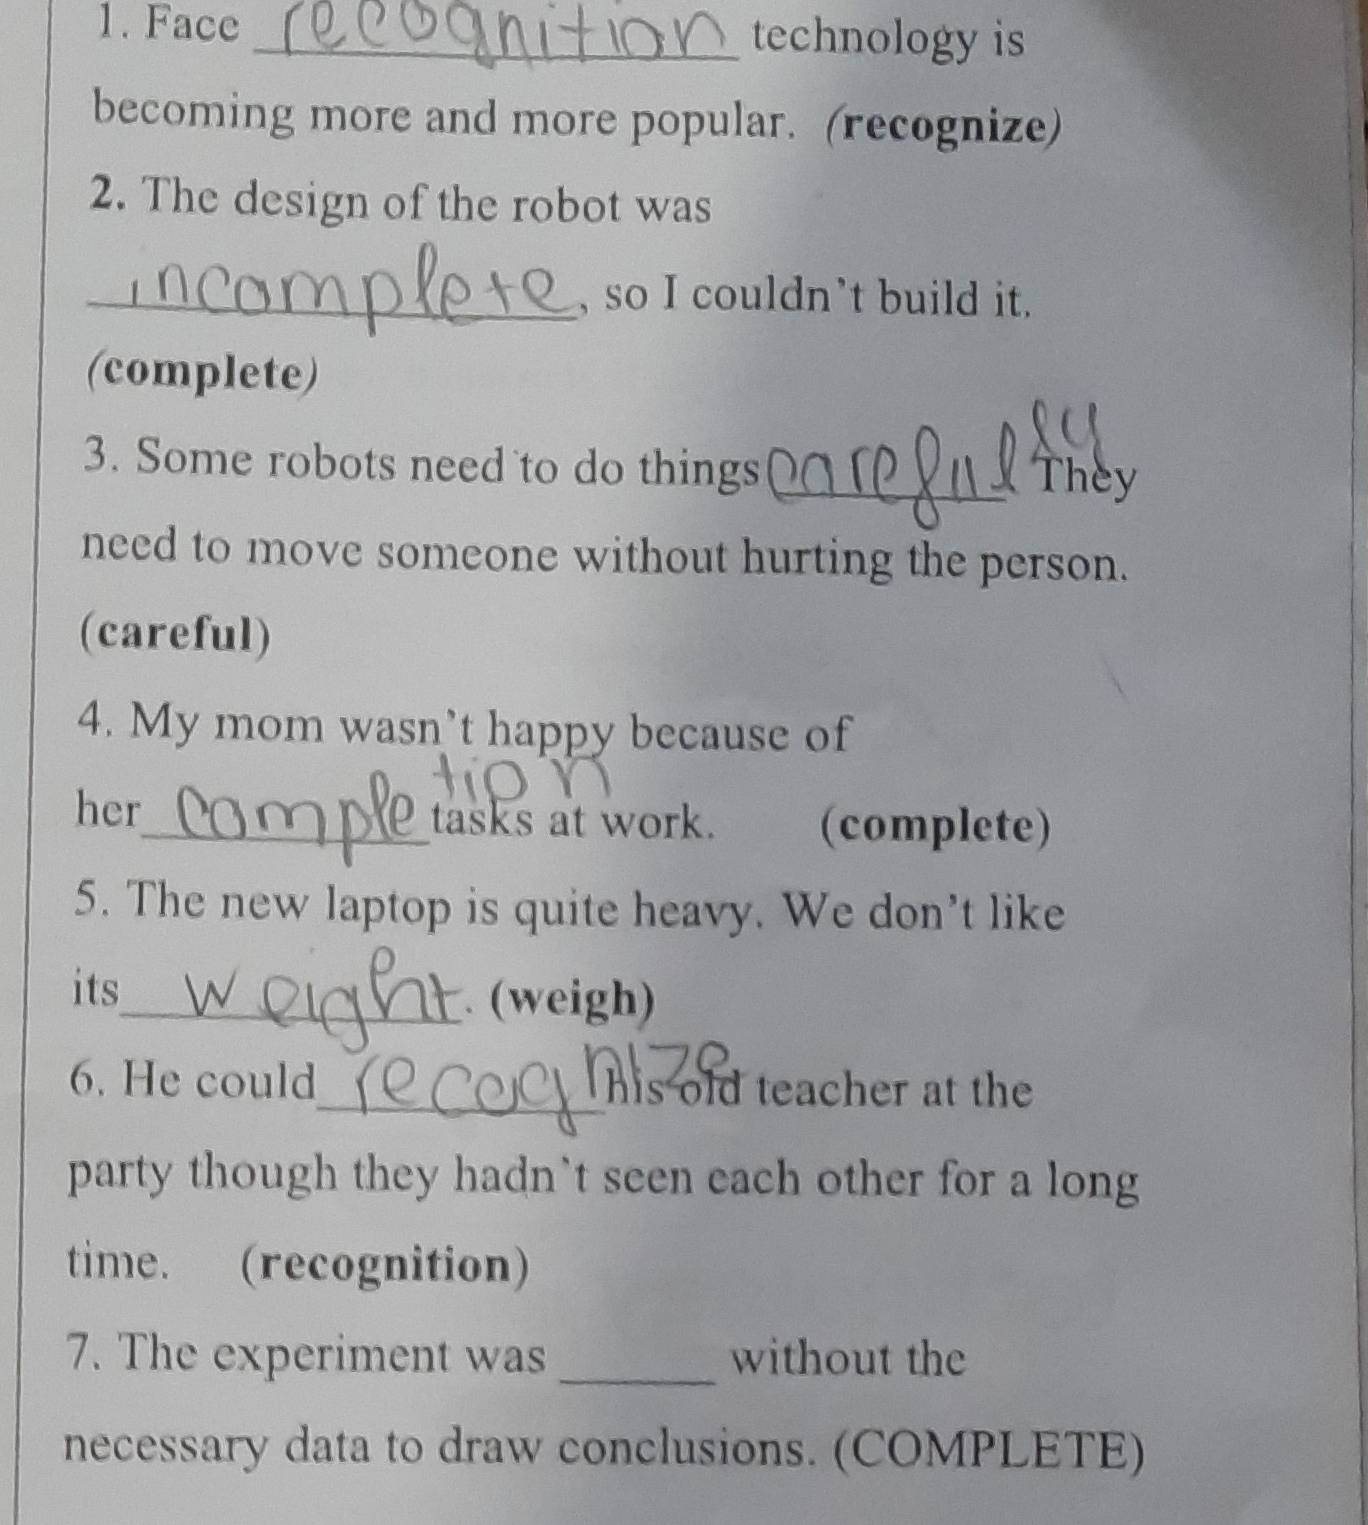 1. Face recognition technology is
becoming more and more popular. (recognize)
2. The design of the robot was
incomplete, so I couldn't build it.
(complete)
3. Some robots need to do things carefully They
need to move someone without hurting the person.
(careful)
4. My mom wasn't happy because of
her completion tasks at work. (complete)
5. The new laptop is quite heavy. We don't like
its weight. (weigh)
6. He could recognize his old teacher at the
party though they hadn't seen each other for a long
time. (recognition)
7. The experiment was ______ without the
necessary data to draw conclusions. (COMPLETE)